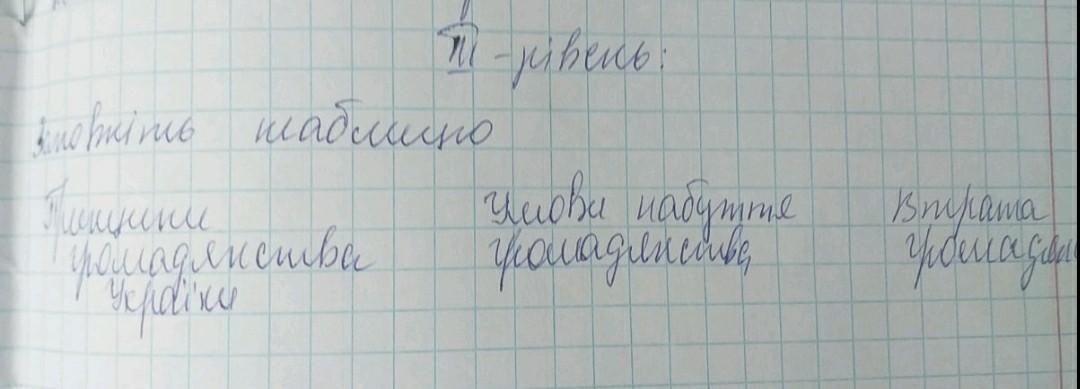 III -рівень:
Заповніть таблицю
Принципи Умови набуття Втрата
громадянства громадянства громадян
України